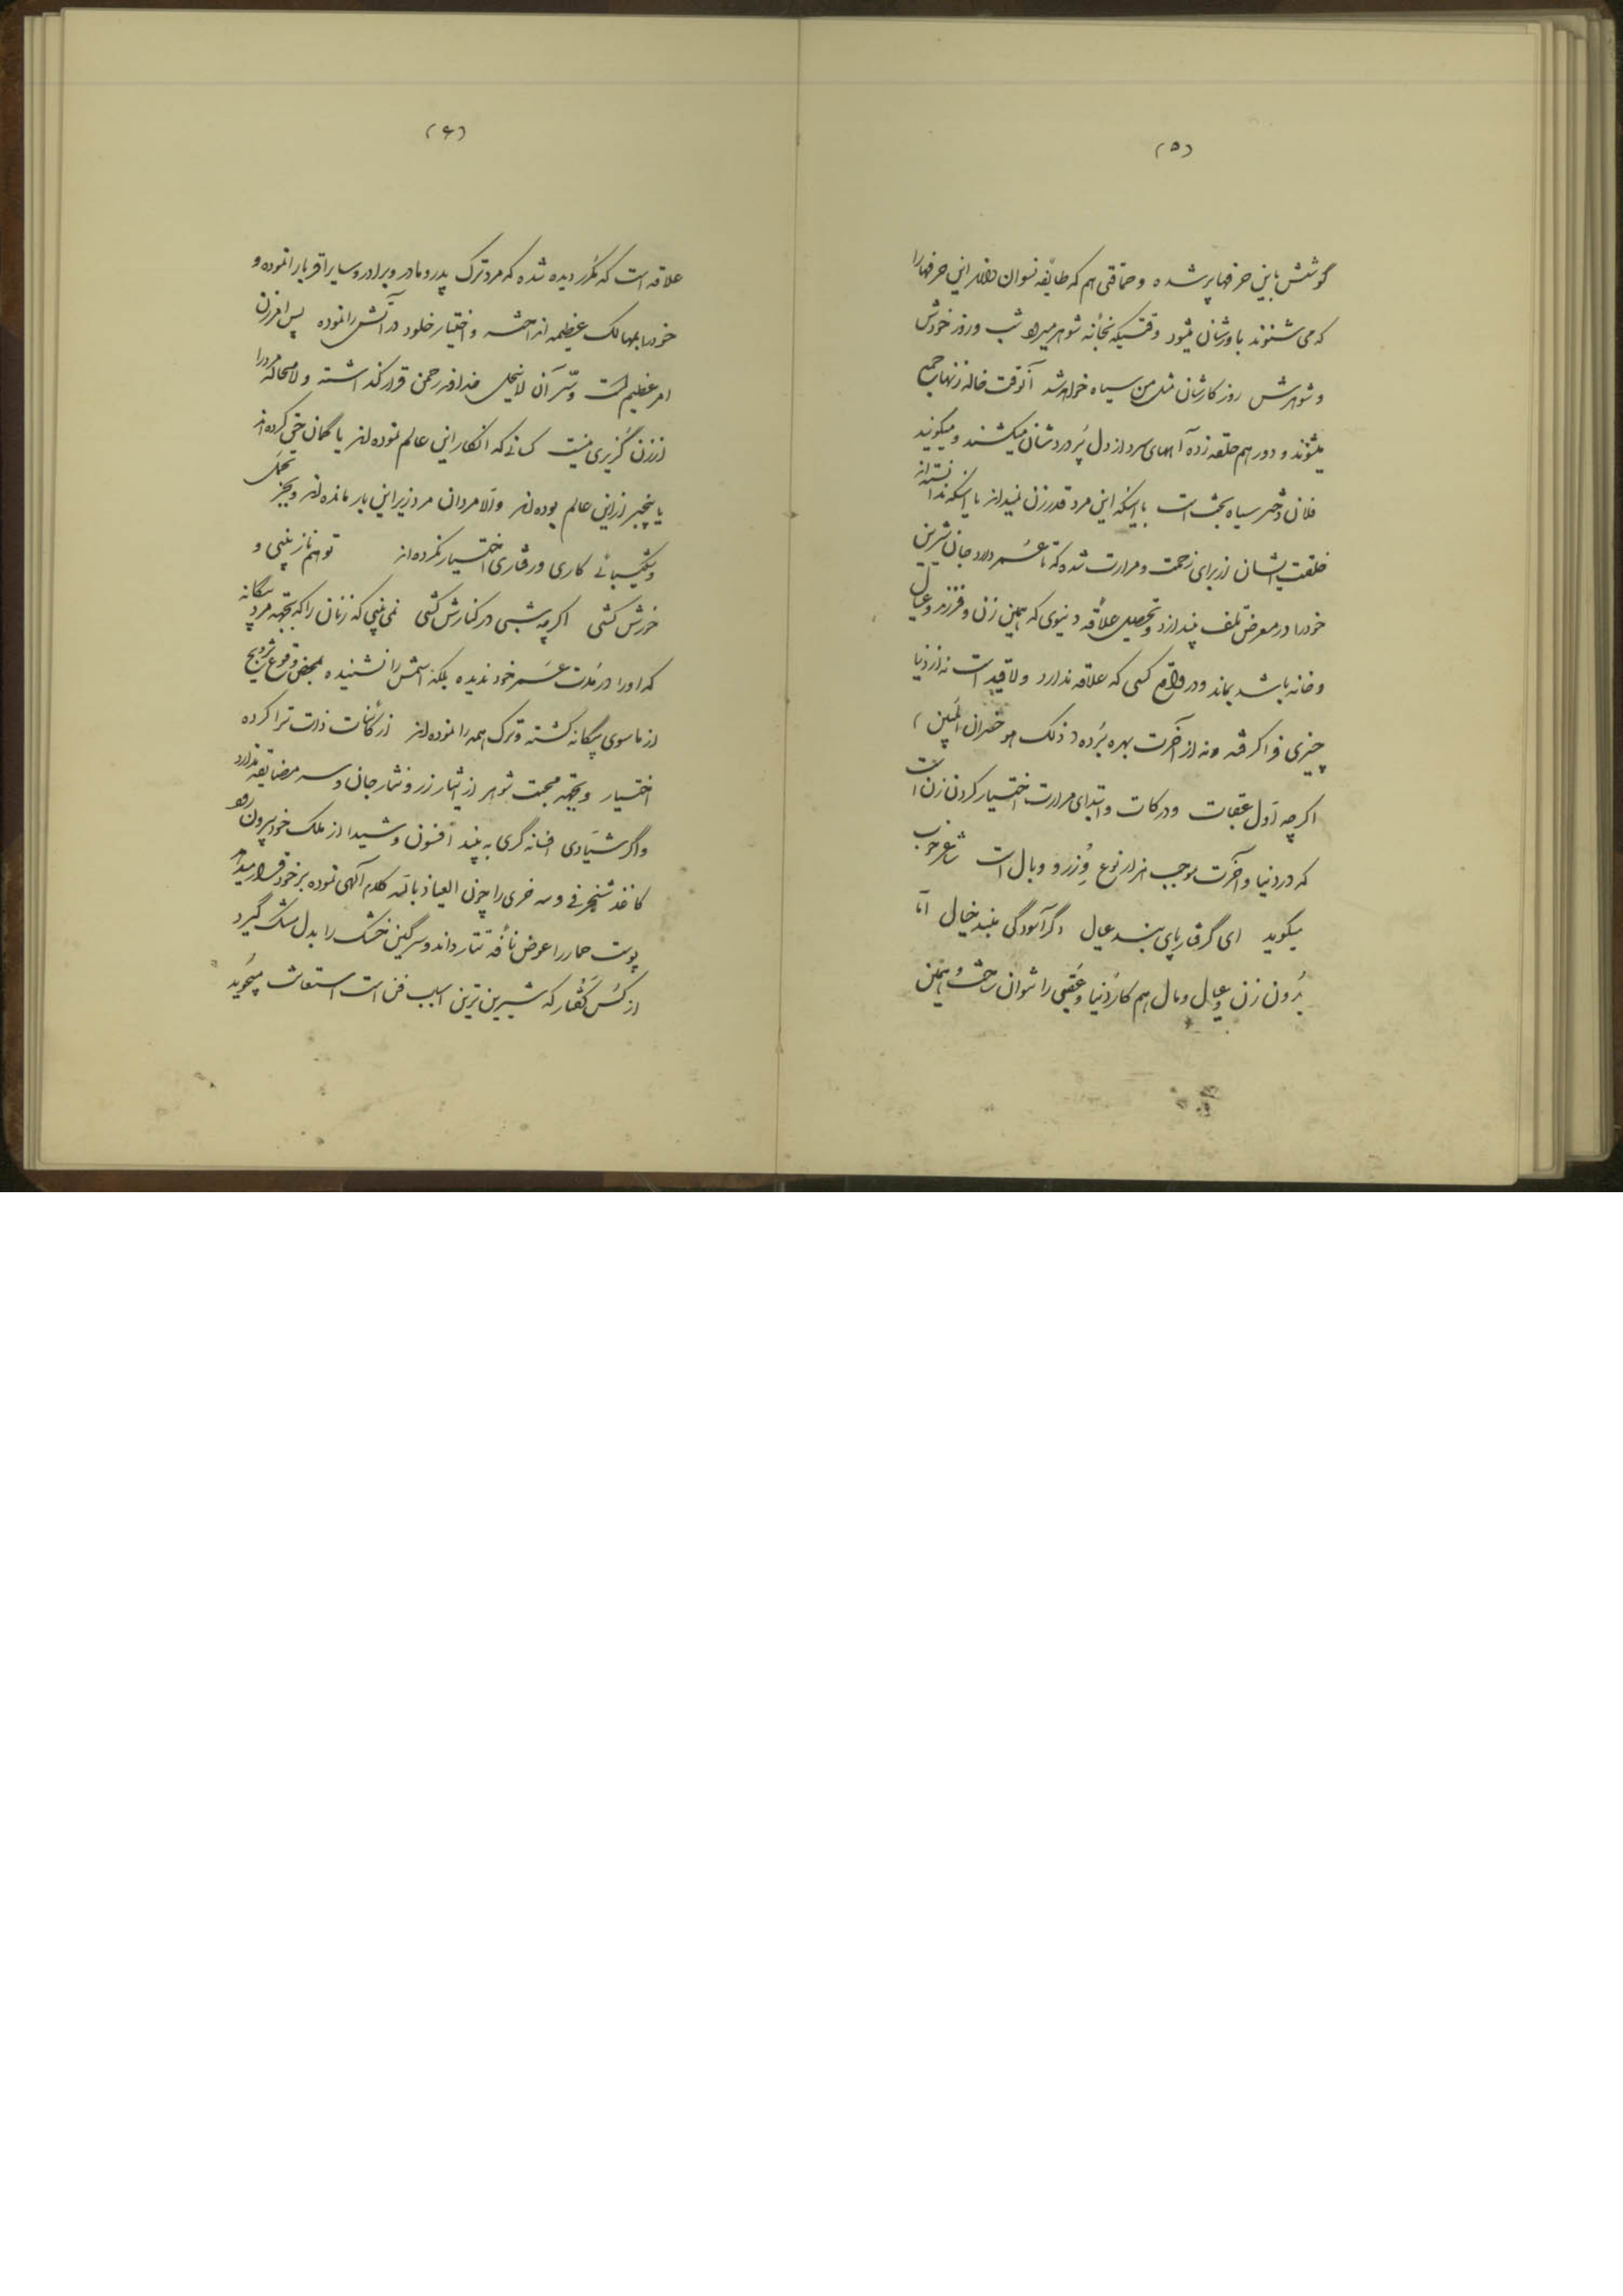 (۵)
گوشش باین حرفها پر شده و حماقتی هم که طایفه نسوان دارند این حرفها را
که می شنوند باورشان میشود وقتیکه بخانه شوهر میرود شب و روز خودش
و شوهرش روز کارشان مثل من سیاه خواهد شد آنوقت خاله زنها جمع
میشوند و دور هم حلقه زده آههای سرد از دل پُر دردشان میکشند و میگویند
فلان دختر سیاه بخت است با اینکه این مرد قدر زن نمیداند یا اینکه ندانسته اند
خلقت ایشان از برای زحمت و مرارت شده که تا عمر دارد جان شیرین
خود را در معرض تلف بیندازد و تحصیل علاقه دنیوی که همین زن و فرزند و عیال
و خانه باشد بماند و در واقع کسی که علاقه ندارد و لاقید است نه از دنیا
چیزی فرا گرفته و نه از آخرت بهره بُرده (ذلک هو خسران المبین)
اگرچه اول عقبات و درکات و ابتدای مرارت اختیار کردن زن است
که در دنیا و آخرت موجب هزار نوع وِزر و وبال است شاعر خوب
میگوید ای گرفتار پای بند عیال دگر آسودگی مبند خیال اما
بدون زن و عیال و مال هم کار دنیا و عقبی را نتوان ساخت و همین
(۶)
علاقه است که مکرر دیده شده که مرد ترک پدر و مادر و برادر و سایر اقربا را نموده و
خود را بمهالک عظیمه انداخته و اختیار خلود در آتش را نموده پس امر زن
امر عظیمیست و سرّ آن لاینحل خداوند رحمن قرار گذاشته و لامحاله مرد را
از زن گزیری نیست کسانیکه انکار این عالم نموده اند یا گمان حق کرده اند
یا بیخبر از این عالم بوده اند والا مردان مرد زیر این بار مانده اند و بجز تحمل
و شکیبائی کاری و رفتاری اختیار نکرده اند تو هم نازبینی و
خورش کشی اگرچه شبی در کنارش کشی نمی بینی که زنان را که بجهة مرد بیگانه
که او را در مُدت عمر خود ندیده بلکه اسمش را نشنیده بمحض وقوع تزویج
از ماسوی بیگانه گشته و ترک همه را نموده اند از کائنات ذات ترا کرده
اختیار و بجهة محبت شوهر از ایثار زر و نثار جان و سر مضایقه ندارد
و اگر شیادی افسانه گری به بیند افسون و شیدا از ملک خود بیرون رود
کاغذ شنجرفی و سه خری را چون العیاذ بالله کلام آلهی نموده بر خود قرار میدهد
پوست حمار را عوض نافه تتار داند و سرگین خشک را بدل مشک گیرد
از کُس کفتار که شیرین ترین اسباب فن است استعانت میجوید